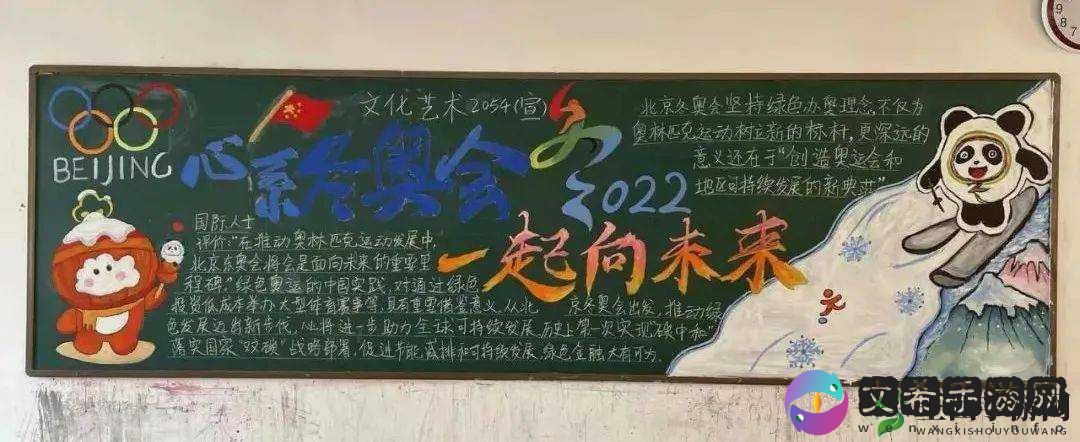 BEIJING
文化艺术2054(宣)
心系冬奥会
冬
2022
一起向未来
北京冬奥会坚持绿色办奥理念,不仅为
奥林匹克运动树立新的标杆,更深远的
意义还在于“创造奥运会和
地区可持续发展的新典范”
国际人士
评价:“在推动奥林匹克运动发展中,
北京冬奥会将会是面向未来的重要里
程碑”绿色奥运的中国实践,对通过绿色
投资低成本举办大型体育赛事等,具有重要借鉴意义,从北 京冬奥会出发,推动绿
色发展迈出新步伐,必将进一步助力全球可持续发展,历史上第一次实现“碳中和”
落实国家“双碳”战略部署,促进节能减排和可持续发展,绿色金融大有可为.
9
8
7
艾希手游网
wenxi.info
WANGKISHOUYOUWANG